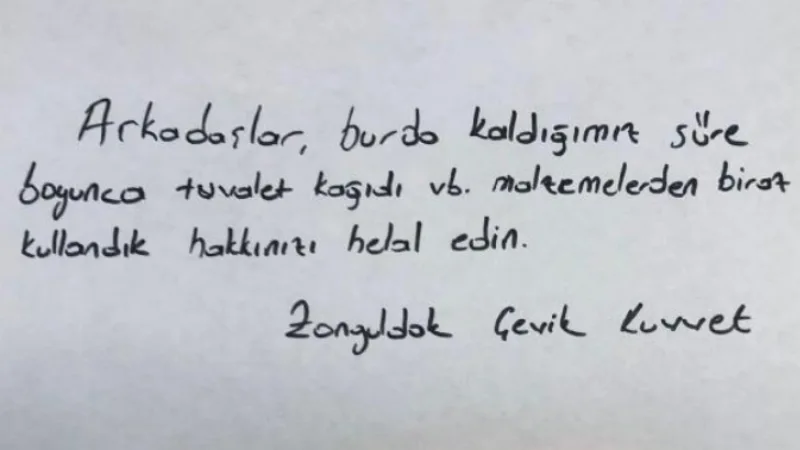 Arkadaşlar, burda kaldığımız süre
boyunca tuvalet kağıdı vb. malzemelerden biraz
kullandık hakkınızı helal edin.
Zonguldak Çevik Kuvvet